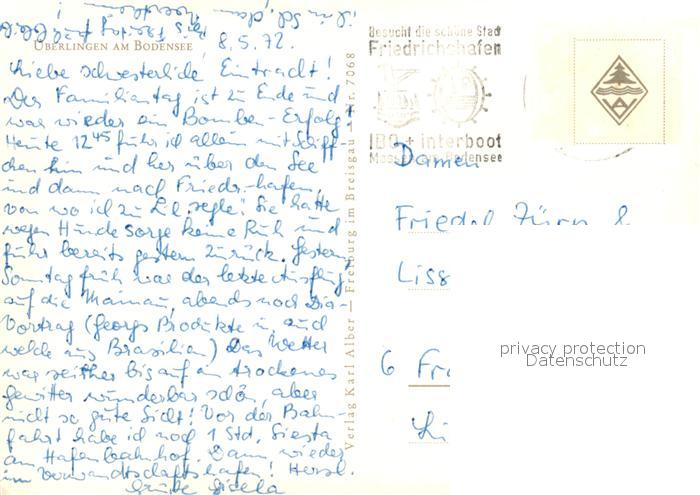 ÜBERLINGEN AM BODENSEE
8.5.72.
Liebe schwesterliche Eintracht!
Der Familientag ist zu Ende und
war wieder ein Bomben-Erfolg!
Heute 12⁴⁵ fuhr ich allein mit Schiff-
chen hin und her über den See
und dann nach Friedr.-hafen,
von wo ich zu Lil. segle! Sie hatte
wegen Hundesorge keine Ruh und
fuhr bereits gestern zurück. Gestern,
Sonntag früh war der letzte Ausflug
auf die Mainau, abends noch Dia-
Vortrag (Georgs Produkte u. auch
welche aus Brasilien) Das Wetter
war seither bis auf ein trockenes
Gewitter wunderbar schön, aber
nicht so gute Sicht! Vor der Bahn-
fahrt habe ich noch 1 Std. Siesta
am Hafenbahnhof. Dann wieder
im Verwandtschaftshafen! Herzl.
Grüße Gisela
Verlag Karl Alber — Freiburg im Breisgau — Nr. 7068
Besucht die schöne Stadt
Friedrichshafen
IBO + interboot
Messen am Bodensee
Damen
Friedel Zürn &
Liss
6 Fr
Li
privacy protection
Datenschutz